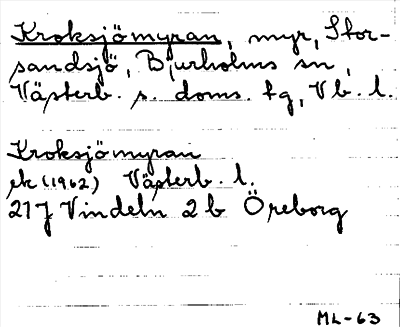 Kroksjömyran, myr, Stor-
sandsjö, Bjurholms sn,
Västerb. s. doms. tg, Vb. l.
Kroksjömyran
ek (1962) Västerb. l.
21J Vindeln 2b Öreborg
ML-63